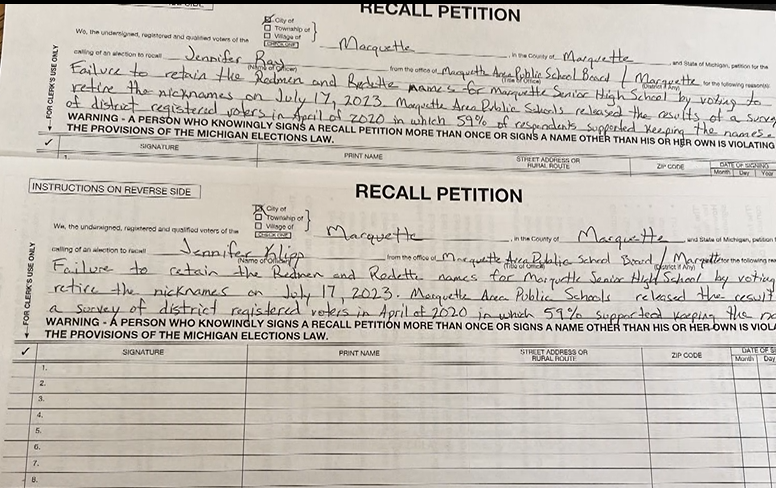 RECALL PETITION
We, the undersigned, registered and qualified voters of the
City of
Township of
Village of
CHECK ONE
Marquette, in the County of Marquette and State of Michigan, petition for the
calling of an election to recall Jennifer Ray from the office of Marquette Area Public School Board / Marquette for the following reason(s):
(Name of Officer) (Title of Office) (District if Any)
Failure to retain the Redmen and Redette names for Marquette Senior High School by voting to
retire the nicknames on July 17, 2023. Marquette Area Public Schools released the results of a survey
of district registered voters in April of 2020 in which 59% of respondents supported keeping the names.
WARNING - A PERSON WHO KNOWINGLY SIGNS A RECALL PETITION MORE THAN ONCE OR SIGNS A NAME OTHER THAN HIS OR HER OWN IS VIOLATING
THE PROVISIONS OF THE MICHIGAN ELECTIONS LAW.
FOR CLERK'S USE ONLY
✓ SIGNATURE PRINT NAME STREET ADDRESS OR RURAL ROUTE ZIP CODE DATE OF SIGNING
Month Day Year
1.
INSTRUCTIONS ON REVERSE SIDE
RECALL PETITION
We, the undersigned, registered and qualified voters of the
City of
Township of
Village of
CHECK ONE
Marquette, in the County of Marquette and State of Michigan, petition
calling of an election to recall Jennifer Klipp from the office of Marquette Area Public School Board / Marquette for the following
(Name of Officer) (Title of Office) (District if Any)
Failure to retain the Redmen and Redette names for Marquette Senior High School by voting
retire the nicknames on July 17, 2023. Marquette Area Public Schools released the result
a survey of district registered voters in April of 2020 in which 59% supported keeping the
WARNING - A PERSON WHO KNOWINGLY SIGNS A RECALL PETITION MORE THAN ONCE OR SIGNS A NAME OTHER THAN HIS OR HER OWN IS VIOLA
THE PROVISIONS OF THE MICHIGAN ELECTIONS LAW.
FOR CLERK'S USE ONLY
✓ SIGNATURE PRINT NAME STREET ADDRESS OR RURAL ROUTE ZIP CODE DATE OF
Month Day
1.
2.
3.
4.
5.
6.
7.
8.